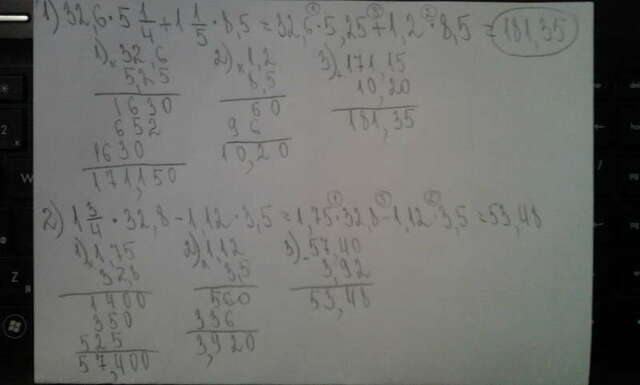 1) 32,6 · 5 1/4 + 1 1/5 · 8,5 = 32,6 · 5,25 + 1,2 · 8,5 = 181,35
1) × 32,6
5,25
1630
652
1630
171,150
2) × 1,2
8,5
60
96
10,20
3) 171,15
10,20
181,35
2) 1 3/4 · 32,8 - 1,12 · 3,5 = 1,75 · 32,8 - 1,12 · 3,5 = 53,48
1) × 1,75
32,8
1400
350
525
57,400
2) × 1,12
3,5
560
336
3,920
3) - 57,40
3,92
53,48